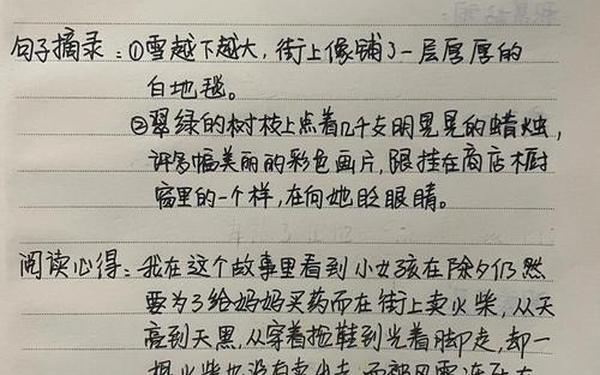 句子摘录：①雪越下越大，街上像铺了一层厚厚的
白地毯。
②翠绿的树枝上点着几千支明晃晃的蜡烛，
许多幅美丽的彩色画片，跟挂在商店橱
窗里的一个样，在向她眨眼睛。
阅读心得：我在这个故事里看到小女孩在除夕仍然
要为了给妈妈买药而在街上卖火柴，从天
亮到天黑，从穿着拖鞋到光着脚走，却一
根火柴也没有卖出去